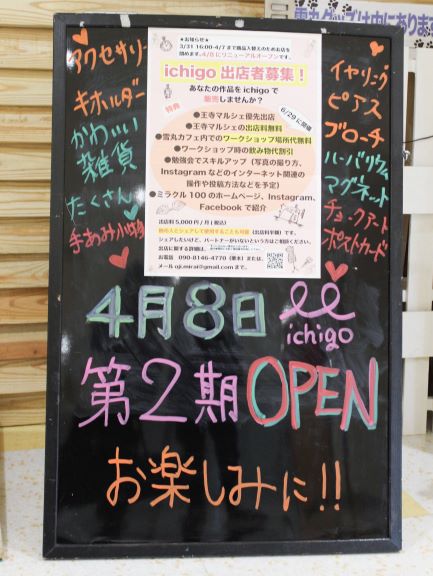 雪丸グッズは中にあります
アクセサリー
キホルダー
かわいい
雑貨
たくさん
手あみ小物
<お知らせ>
3/31 16:00-4/7まで商品入替えのためお店を
閉めます。4/8にリニューアルオープンです。
ichigo 出店者募集！
あなたの作品を ichigo で
販売しませんか？
特典
6/29に開催
●王寺マルシェ優先出店
●王寺マルシェの出店料無料
●雪丸カフェ内でのワークショップ場所代無料
●ワークショップ時の飲み物代割引
●勉強会でスキルアップ（写真の撮り方、
Instagram などのインターネット関連の
操作や投稿方法などを予定）
●ミラクル100のホームページ、Instagram、
Facebook で紹介
出店料 5,000円／月（税込）
他の人とシェアして使用することも可能（出店料半額）です。
シェアしたいけど、パートナーがいないという方はご相談ください。
出店に関する詳細は、
お電話 090-8146-4770（栗本）または、
メール oji.mirai@gmail.com まで。
イヤリング
ピアス
ブローチ
ハーバリウム
マグネット
チョークアート
ポストカード
4月8日
ichigo
第2期 OPEN
お楽しみに!!